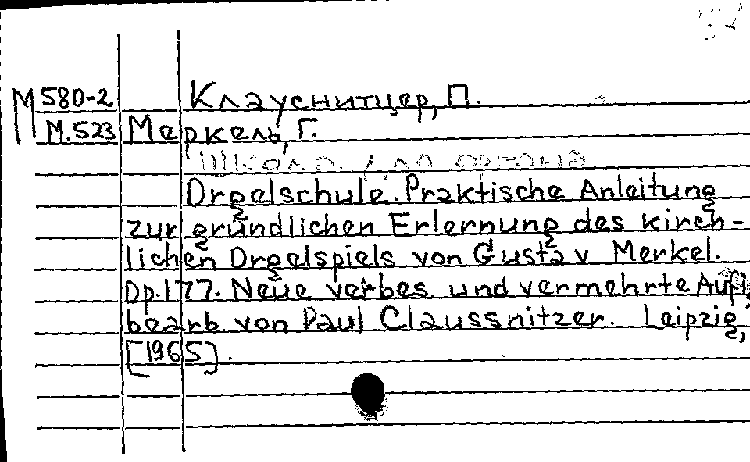 М 580-2 Клауснитцер, П.
М.523 Меркель, Г.
Школа для органа
Orgelschule. Praktische Anleitung
zur gründlichen Erlernung des kirch-
lichen Orgelspiels von Gustav Merkel.
Op.177. Neue verbes. und vermehrte Aufl.,
bearb. von Paul Claussnitzer. Leipzig,
[1965].